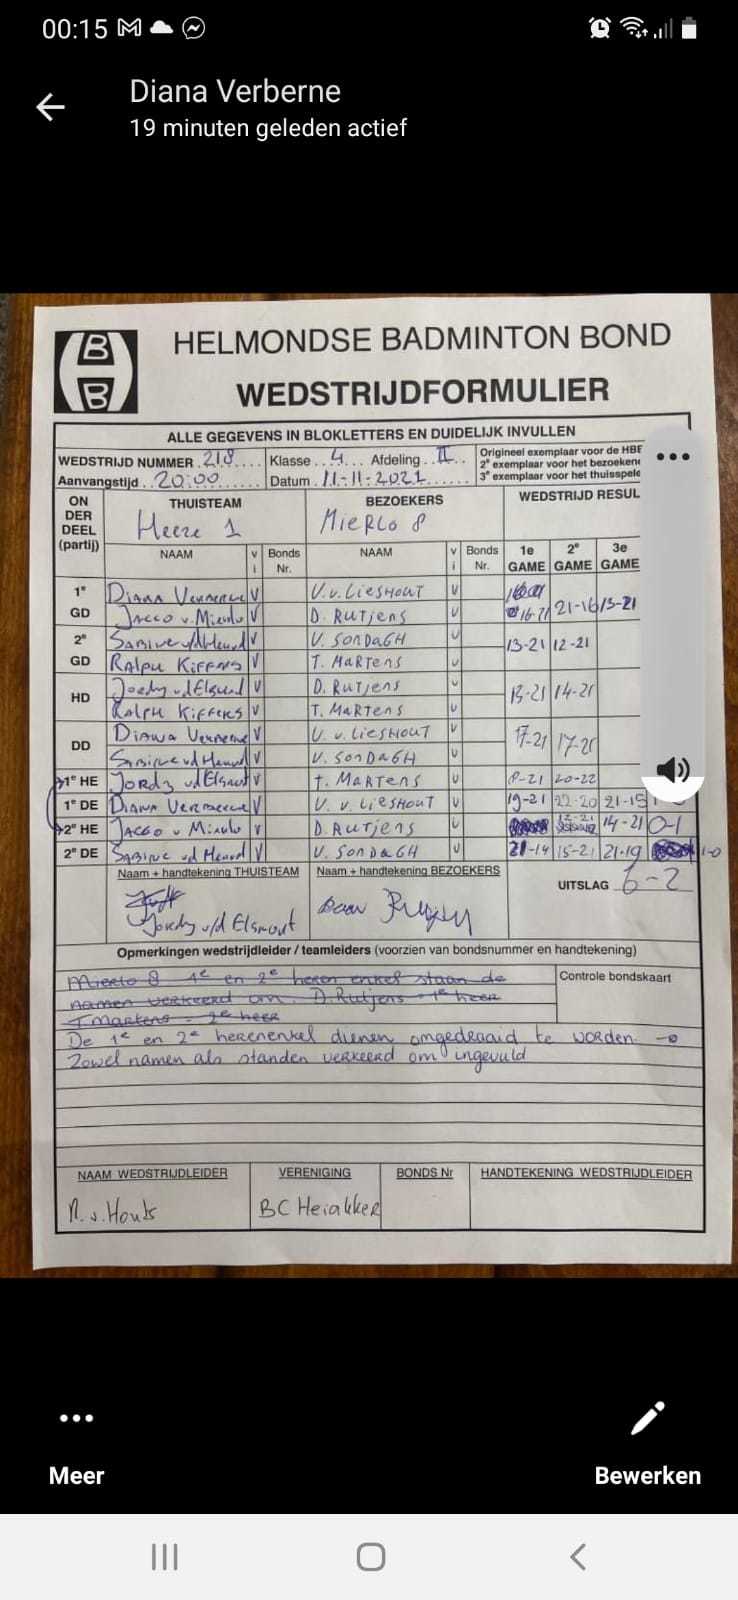 00:15
Diana Verberne
19 minuten geleden actief
HELMONDSE BADMINTON BOND
WEDSTRIJDFORMULIER
ALLE GEGEVENS IN BLOKLETTERS EN DUIDELIJK INVULLEN
WEDSTRIJD NUMMER 218 Klasse 4 Afdeling II Origineel exemplaar voor de HBB
Aanvangstijd 20:00 Datum 11-11-2021 2e exemplaar voor het bezoeken
3e exemplaar voor het thuisspele
ON DER DEEL (partij) THUISTEAM BEZOEKERS WEDSTRIJD RESUL
Heeze 1 MIERLO 8
NAAM v i Bonds Nr. NAAM v i Bonds Nr. 1e GAME 2e GAME 3e GAME
1e GD DIANA VERBERNE V V. v. LIESHOUT V
JACCO v. Mierlo V D. RUTJENS V 16-21 21-16 13-21
2e GD SABINE v/d Heuvel V V. SONDAGH V 13-21 12-21
RALPH KIFFERS V T. MARTENS V
HD Jordy vd Elsaut V D. RUTJENS V 13-21 14-21
RALPH KIFFERS V T. MARTENS V
DD DIANA VERBERNE V V. v LIESHOUT V 17-21 17-21
SABINE vd Heuvel V V. SONDAGH V
1e HE JORDY vd Elsaut V T. MARTENS V 8-21 20-22
1e DE DIANA VERBERNE V V. v. LIESHOUT V 19-21 22-20 21-15
2e HE JACCO v Mierlo V D. RUTJENS V 12-21 14-21 0-1
2e DE SABINE vd Heuvel V V. SONDAGH V 21-14 15-21 21-19 1-0
Naam + handtekening THUISTEAM Naam + handtekening BEZOEKERS
UITSLAG 6-2
Jordy v/d Elsaut Daan Rutjens
Opmerkingen wedstrijdleider / teamleiders (voorzien van bondsnummer en handtekening)
Mierlo 8 1e en 2e heren enkel staan de Controle bondskaart
namen verkeerd om D. Rutjens - 1e heer
T Martens - 2e heer
De 1e en 2e herenenkel dienen omgedraaid te worden →
Zowel namen als standen verkeerd om ingevuld
NAAM WEDSTRIJDLEIDER VERENIGING BONDS Nr HANDTEKENING WEDSTRIJDLEIDER
R. v. Houts BC Heiakker
Meer
Bewerken